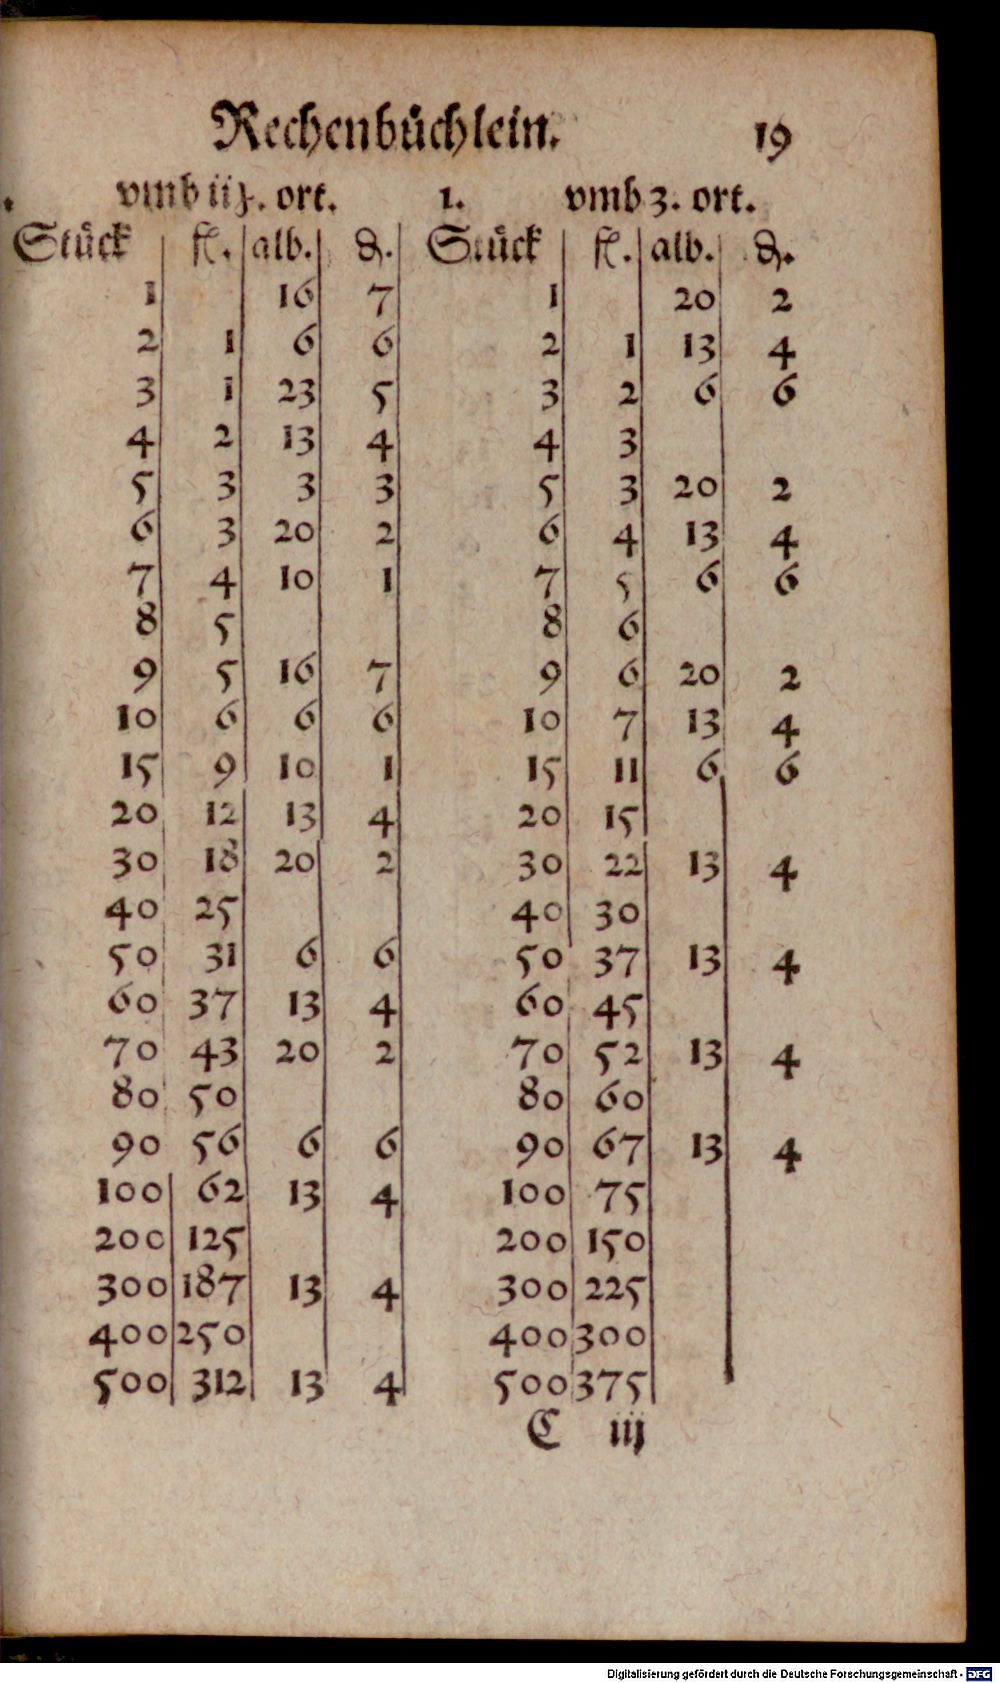 Rechenbüchlein. 19
. vmb iiȷ. ort. 1. vmb 3. ort.
Stück fl. alb. ₰. Stück fl. alb. ₰.
1 16 7 1 20 2
2 1 6 6 2 1 13 4
3 1 23 5 3 2 6 6
4 2 13 4 4 3
5 3 3 3 5 3 20 2
6 3 20 2 6 4 13 4
7 4 10 1 7 5 6 6
8 5 8 6
9 5 16 7 9 6 20 2
10 6 6 6 10 7 13 4
15 9 10 1 15 11 6 6
20 12 13 4 20 15
30 18 20 2 30 22 13 4
40 25 40 30
50 31 6 6 50 37 13 4
60 37 13 4 60 45
70 43 20 2 70 52 13 4
80 50 80 60
90 56 6 6 90 67 13 4
100 62 13 4 100 75
200 125 200 150
300 187 13 4 300 225
400 250 400 300
500 312 13 4 500 375
C iij
Digitalisierung gefördert durch die Deutsche Forschungsgemeinschaft - DFG